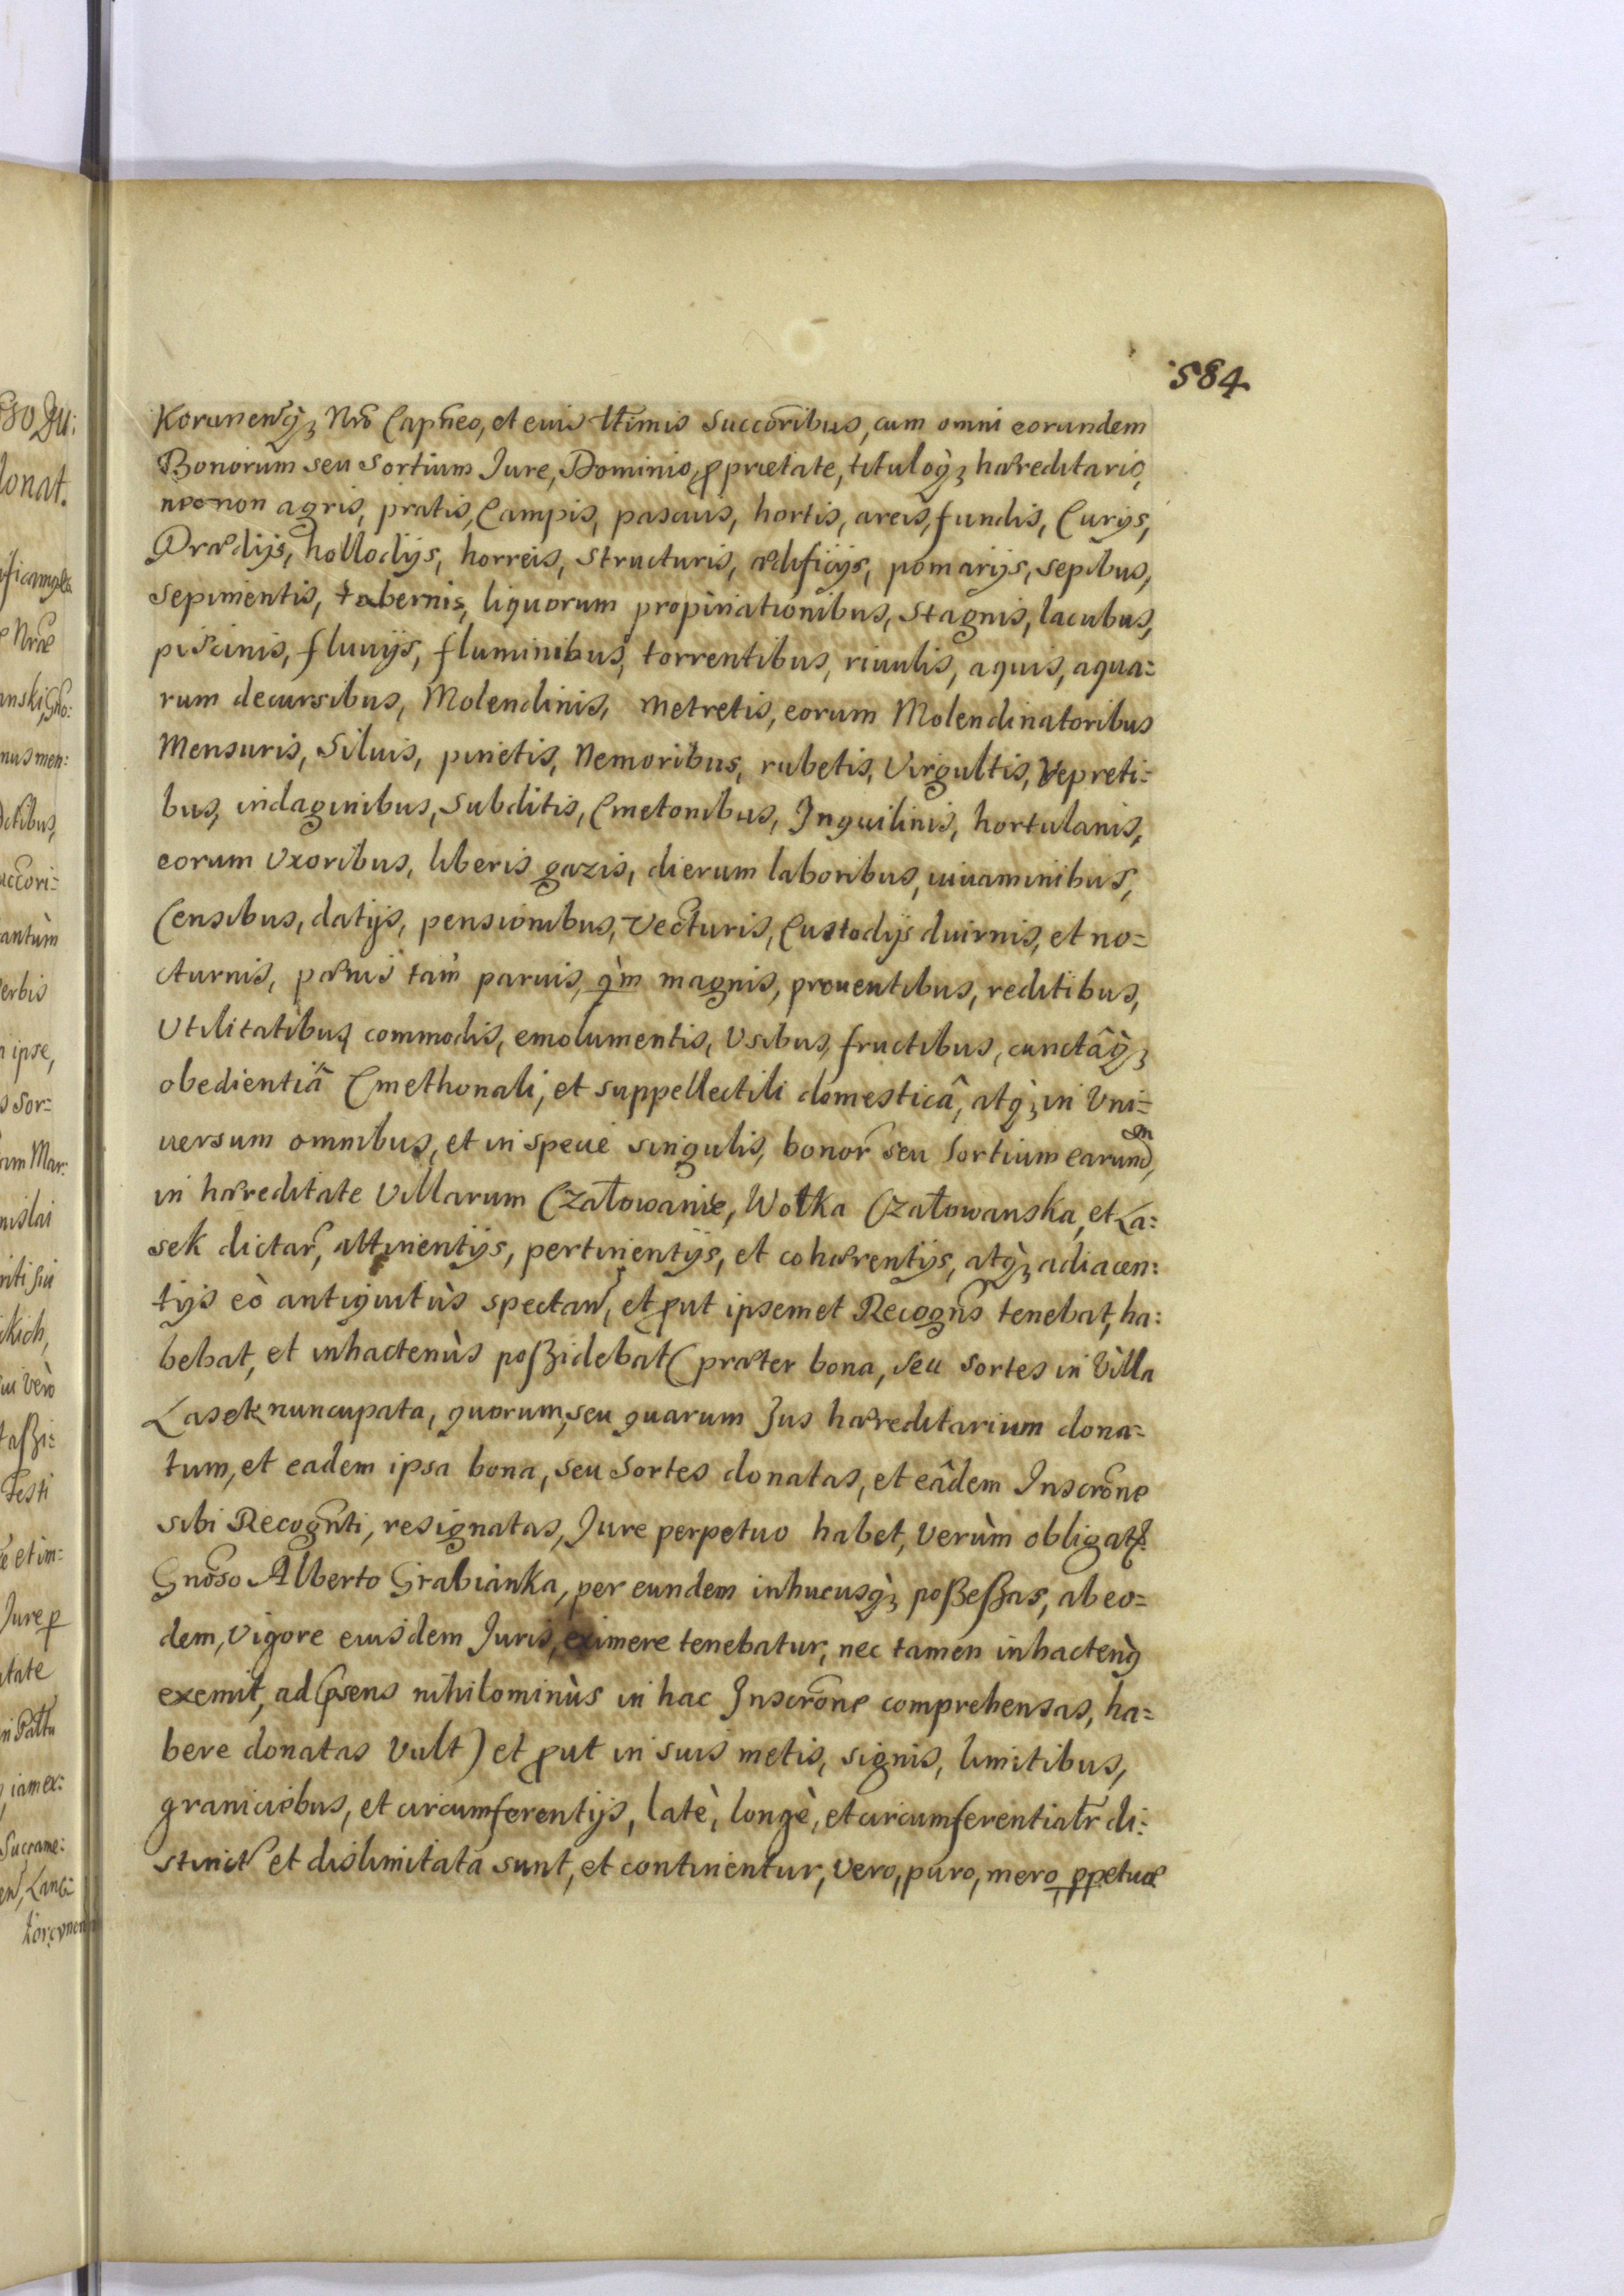 584
Korunenꝗ Nr̃o Capñeo, et eius lt̃imis Succor̃ibus, cum omni eorundem
Bonorum seu Sortium Jure, Dominio, ꝓprietate, tituloqꝫ hæreditario,
necnon agris, pratis, Campis, pascuis, hortis, areis, fundis, Curijs,
Prædijs, hollodijs, horreis, structuris, ædificijs, pomarijs, sepibus,
sepimentis, tabernis, liquorum propinationibus, stagnis, lacubus,
piscinis, fluuijs, fluminibus, torrentibus, riuulis, aquis, aqua=
rum decursibus, Molendinis, Metretis, eorum Molendinatoribus
Mensuris, Siluis, pinetis, Nemoribus, rubetis, Virgultis, Vepreti=
bus, indaginibus, Subditis, Cmetonibus, Inquilinis, hortulanis,
eorum Vxoribus, liberis gazis, dierum laboribus, iuuaminibus,
Censibus, datijs, pensionibus, Vecturis, Custodijs duirnis, et no=
cturnis, pænis tam̀ paruis, qm̀ magnis, prouentibus, reditibus,
Vtilitatibus, commodis, emolumentis, Vsibus, fructibus, cunctâqꝫ
obedientiâ Cmethonali, et suppellectili domesticâ, atqꝫ in Vni=
uersum omnibus, et in specie singulis, bonor̃ seu Sortium earund̃,
in hæreditate Villarum Czałowanie, Wolka Czałowanska, et La=
sek dictar̃, attinentijs, pertinentijs, et cohærentijs, atqꝫ adiacen=
tijs eò antiquitùs spectañ, et ꝓut ipsemet Recogn̄s tenebat, ha=
bebat, et inhactenùs poßidebat (præter bona, seu Sortes in Villa
Lasek nuncupata, quorum, seu quarum Jus hæreditarium dona=
tum, et eadem ipsa bona, seu Sortes donatas, et eâdem Inscr̃one
sibi Recogn̄ti, resignatas, Jure perpetuo habet, Verùm obligat̃
Gnõso Alberto Grabianka, per eundem inhucusqꝫ poßeßas, ab eo=
dem, Vigore eiusdem Juris, eximere tenebatur, nec tamen inhactenꝰ
exemit, ad p̃sens nihilominùs in hac Inscr̃one comprehensas, ha=
bere donatas Vult) et ꝓut in suis metis, signis, limitibus,
graniciebus, et circumferentijs, latè, longè, et circumferentialr̃ di=
stinct̃ et dislimitata sunt, et continentur, Vero, puro, mero ꝑpetuoꝗ